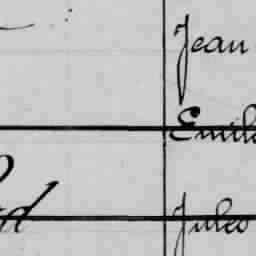 Jean
Emile
Jules